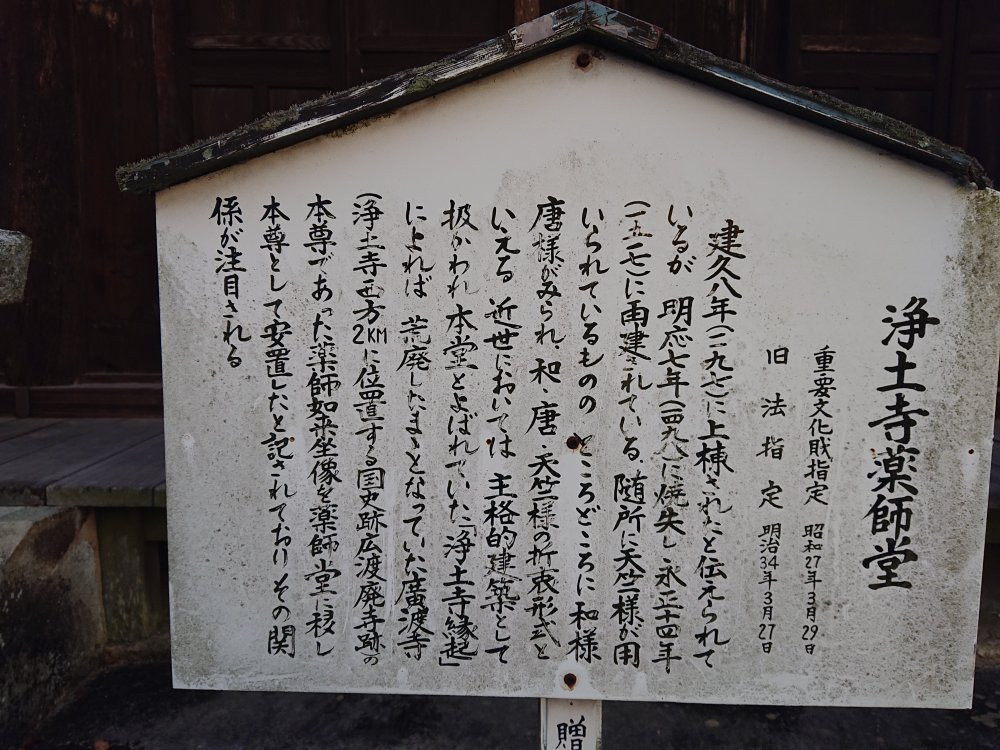 浄土寺薬師堂
重要文化財指定 昭和27年3月29日
旧法指定 明治34年3月27日
建久八年(一一九七)に上棟されたと伝えられて
いるが 明応七年(一四九八)に焼失し 永正十四年
(一五一七)に再建されている。随所に天竺様が用
いられているものの ところどころに和様
唐様がみられ、和・唐・天竺様の折衷形式と
いえる 近世においては 主格的建築として
扱かわれ本堂とよばれていた「浄土寺縁起」
によれば 荒廃したままとなっていた廣渡寺
(浄土寺西方2KMに位置する国史跡広渡廃寺跡の
本尊であった薬師如来坐像を薬師堂に移し
本尊として安置したと記されておりその関
係が注目される
贈